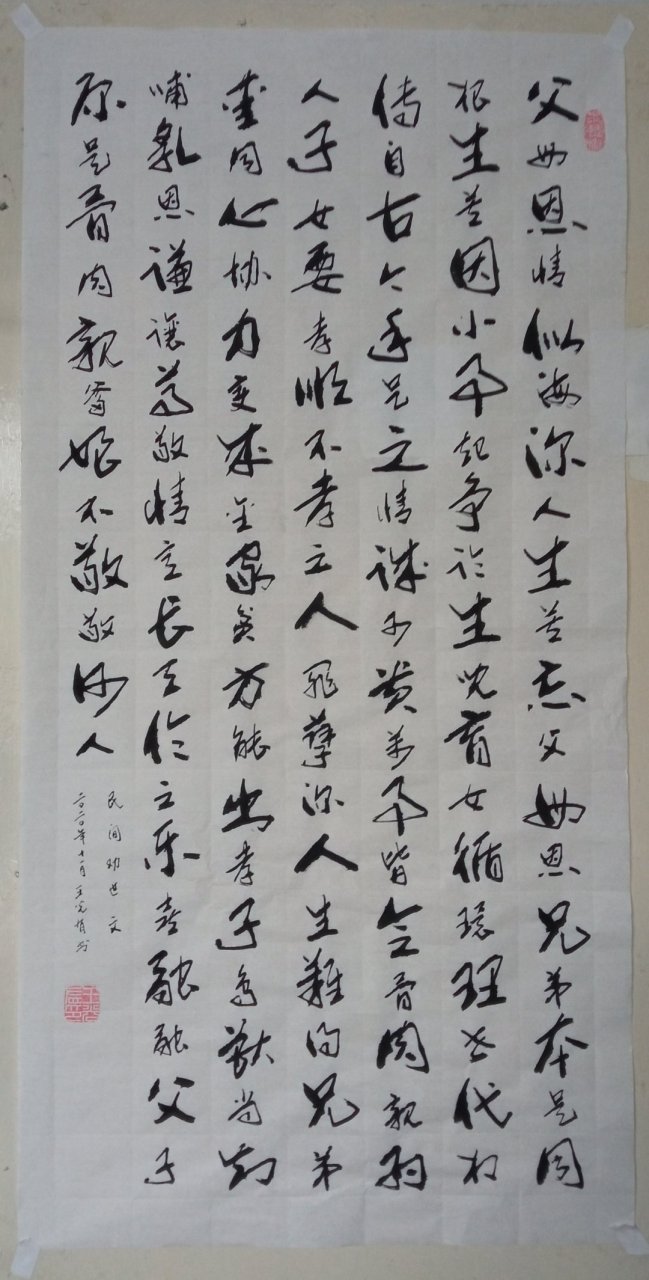 父母恩情似海深人生莫忘父母恩兄弟本是同
根生莫因小事起争论生儿育女循环理世代相
传自古今手足之情诚可贵万事皆念骨肉亲为
人子女要孝顺不孝之人罪孽深人生难得兄弟
爱同心协力变成金家贫方能出孝子鸟兽尚知
哺乳恩谦让尊敬情意长天伦之乐喜融融父子
原是骨肉亲爹娘不敬敬何人
民间劝世文
二〇二〇年十一月王光书